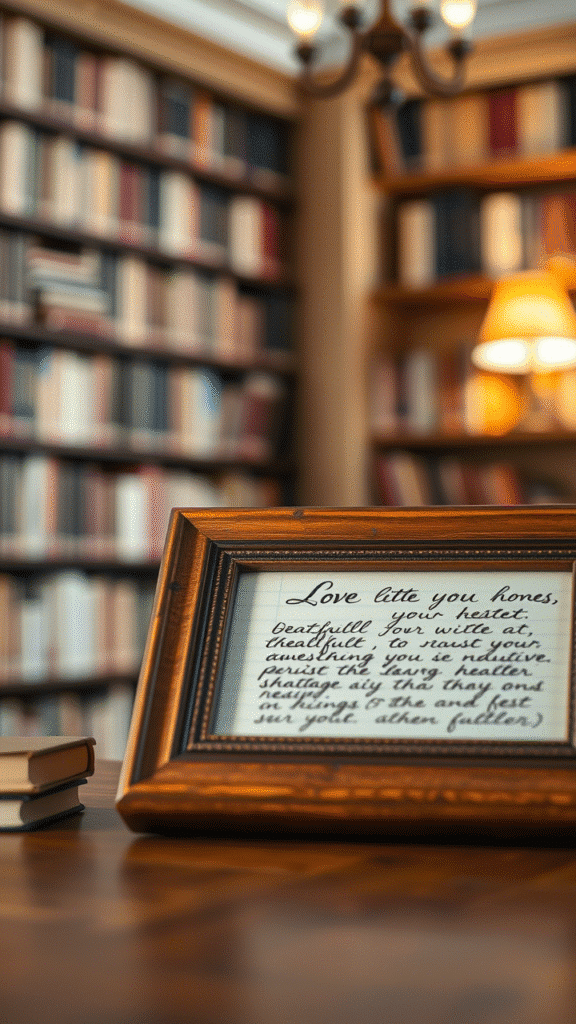 Love litte you homes,
your hestet.
Deatfulll Sour witte at,
thealffult, to raust your
auesthing you se nautive.
persist the Lawrg healter
shattage aiy tha thay ons
nesip.
in hungs & the and fest
sur yout. athen fulller)